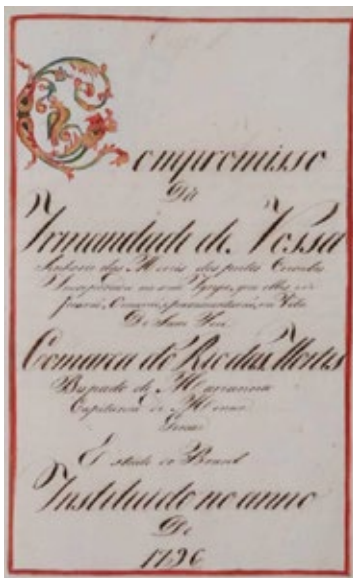 Compromisso
Da
Irmandade de Nossa
Senhora das Mercês dos pretos Crioulos
Incorporada na sua Igreja, que elles
De Sam José
Comarca do Rio das Mortes
Bispado de Marianna
Capitania de Minas
Geraes
Estado do Brasil
Instituido no anno
De
1796